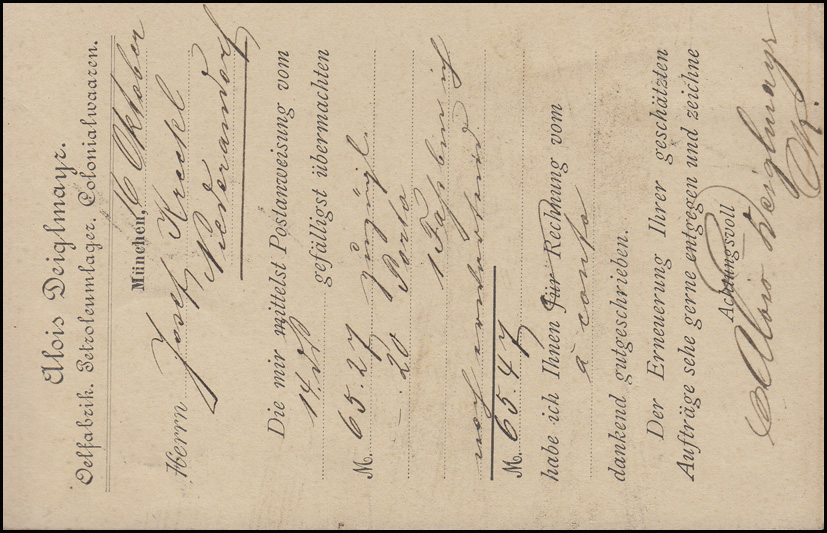 Alois Deiglmayr.
Oelfabrik. Petroleumlager. Colonialwaaren.
München, 6 Oktober
Herrn Josef
Die mir mittelst Postanweisung vom
gefälligst übermachten
M. 65.27 zuzügl.
-.20 Porto
1 Faß bin ich
noch erwartend
M. 65.47
habe ich Ihnen für Rechnung vom
à conto
dankend gutgeschrieben.
Der Erneuerung Ihrer geschätzten
Aufträge sehe gerne entgegen und zeichne
Achtungsvoll
Alois Deiglmayr